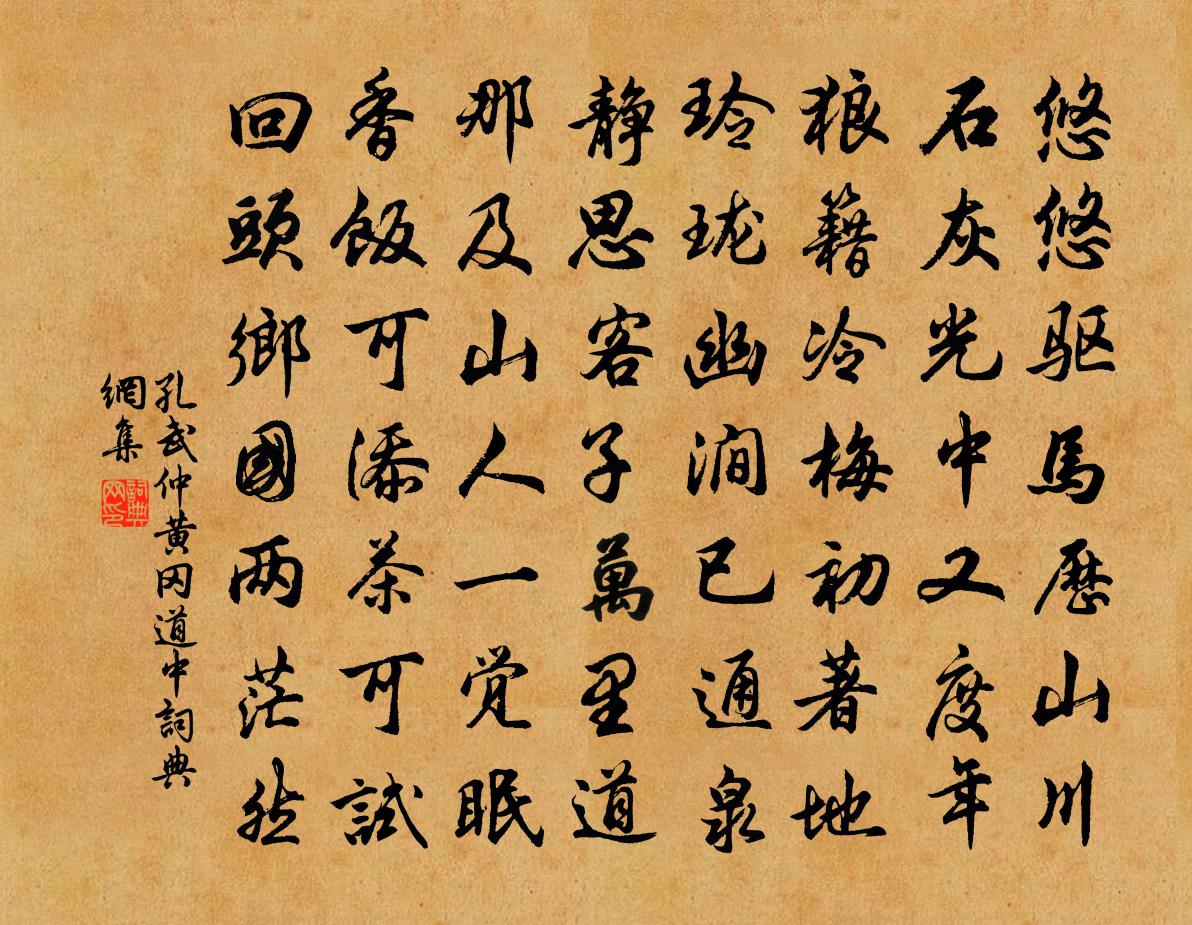 悠悠驱馬歷山川
石灰光中又度年
狼籍冷梅初著地
玲珑幽澗已通泉
静思客子萬里道
那及山人一觉眠
香飯可添茶可試
回頭鄉國两茫然
孔武仲黄冈道中詞典
網集
詞典
网印